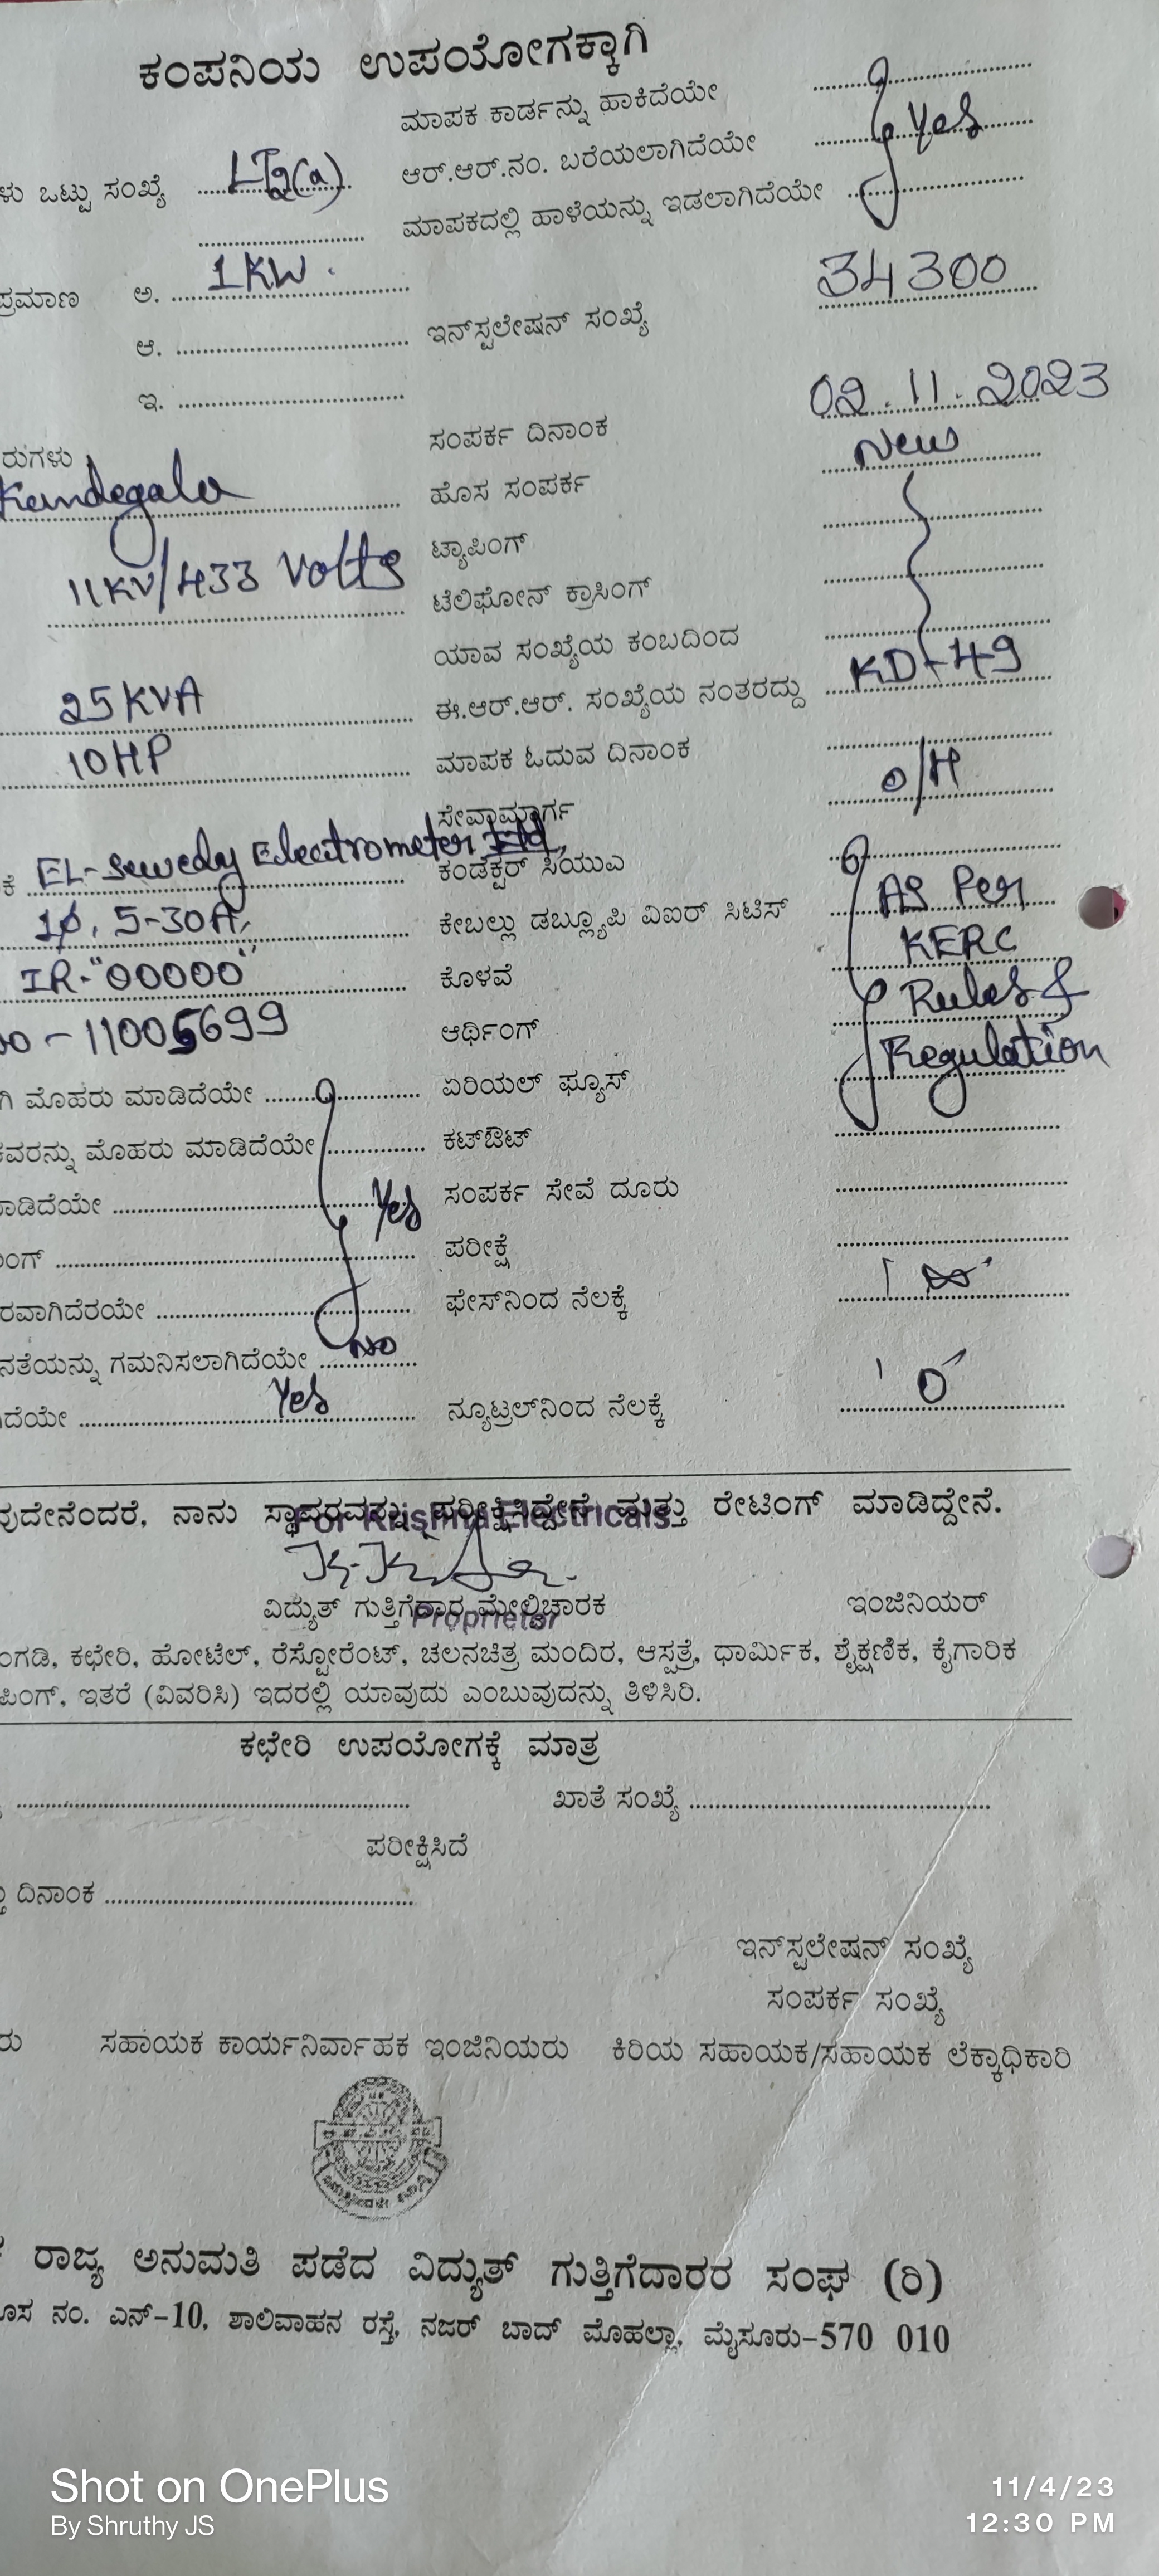 ಕಂಪನಿಯ ಉಪಯೋಗಕ್ಕಾಗಿ
ಮಾಪಕ ಕಾರ್ಡನ್ನು ಹಾಕಿದೆಯೇ
ಳು ಒಟ್ಟು ಸಂಖ್ಯೆ LT2(a) ಆರ್.ಆರ್.ನಂ. ಬರೆಯಲಾಗಿದೆಯೇ Yes
ಮಾಪಕದಲ್ಲಿ ಹಾಳೆಯನ್ನು ಇಡಲಾಗಿದೆಯೇ
ಪ್ರಮಾಣ ಅ. 1KW.
ಆ. ಇನ್‌ಸ್ಟಲೇಷನ್ ಸಂಖ್ಯೆ 34300
ಇ.
ಸಂಪರ್ಕ ದಿನಾಂಕ 02.11.2023
ರುಗಳು
Kandegala ಹೊಸ ಸಂಪರ್ಕ New
ಟ್ಯಾಪಿಂಗ್
11KV/433 Volts ಟೆಲಿಫೋನ್ ಕ್ರಾಸಿಂಗ್
ಯಾವ ಸಂಖ್ಯೆಯ ಕಂಬದಿಂದ
25KVA ಈ.ಆರ್.ಆರ್. ಸಂಖ್ಯೆಯ ನಂತರದ್ದು KD-49
10HP ಮಾಪಕ ಓದುವ ದಿನಾಂಕ
ಸೇವಾಮಾರ್ಗ O/H
ಕೆ EL-Sewedy Electrometer Ltd, ಕಂಡಕ್ಟರ್ ಸಿಯುಎ
1ϕ, 5-30A, ಕೇಬಲ್ಲು ಡಬ್ಲ್ಯೂಪಿ ವಿಐರ್ ಸಿಟಿಸ್ As Per
IR-"00000" ಕೊಳವೆ KERC
00-11005699 ಆರ್ಥಿಂಗ್ Rules &
ಗಿ ಮೊಹರು ಮಾಡಿದೆಯೇ ಏರಿಯಲ್ ಫ್ಯೂಸ್ Regulation
ಕವರನ್ನು ಮೊಹರು ಮಾಡಿದೆಯೇ ಕಟ್‌ಔಟ್
ಾಡಿದೆಯೇ Yes ಸಂಪರ್ಕ ಸೇವೆ ದೂರು
ಂಗ್ ಪರೀಕ್ಷೆ
ರವಾಗಿದೆರಯೇ ಫೇಸ್‌ನಿಂದ ನೆಲಕ್ಕೆ ∞
ನತೆಯನ್ನು ಗಮನಿಸಲಾಗಿದೆಯೇ NO
ದೆಯೇ Yes ನ್ಯೂಟ್ರಲ್‌ನಿಂದ ನೆಲಕ್ಕೆ '0'
ವುದೇನೆಂದರೆ, ನಾನು ಸ್ಥಾವರವನ್ನು ಪರೀಕ್ಷಿಸಿದ್ದೇನೆ ಮತ್ತು ರೇಟಿಂಗ್ ಮಾಡಿದ್ದೇನೆ.
For Krishna Electricals
ವಿದ್ಯುತ್ ಗುತ್ತಿಗೆದಾರ ಮೇಲ್ವಿಚಾರಕ ಇಂಜಿನಿಯರ್
Proprietor
ಂಗಡಿ, ಕಛೇರಿ, ಹೋಟೆಲ್, ರೆಸ್ಟೋರೆಂಟ್, ಚಲನಚಿತ್ರ ಮಂದಿರ, ಆಸ್ಪತ್ರೆ, ಧಾರ್ಮಿಕ, ಶೈಕ್ಷಣಿಕ, ಕೈಗಾರಿಕ
ಪಿಂಗ್, ಇತರೆ (ವಿವರಿಸಿ) ಇದರಲ್ಲಿ ಯಾವುದು ಎಂಬುವುದನ್ನು ತಿಳಿಸಿರಿ.
ಕಛೇರಿ ಉಪಯೋಗಕ್ಕೆ ಮಾತ್ರ
ಖಾತೆ ಸಂಖ್ಯೆ
ಪರೀಕ್ಷಿಸಿದೆ
ದಿನಾಂಕ
ಇನ್‌ಸ್ಟಲೇಷನ್ ಸಂಖ್ಯೆ
ಸಂಪರ್ಕ ಸಂಖ್ಯೆ
ರು ಸಹಾಯಕ ಕಾರ್ಯನಿರ್ವಾಹಕ ಇಂಜಿನಿಯರು ಕಿರಿಯ ಸಹಾಯಕ/ಸಹಾಯಕ ಲೆಕ್ಕಾಧಿಕಾರಿ
ರಾಜ್ಯ ಅನುಮತಿ ಪಡೆದ ವಿದ್ಯುತ್ ಗುತ್ತಿಗೆದಾರರ ಸಂಘ (ರಿ)
ೂಸ ನಂ. ಎನ್-10, ಶಾಲಿವಾಹನ ರಸ್ತೆ, ನಜರ್ ಬಾದ್ ಮೊಹಲ್ಲಾ, ಮೈಸೂರು-570 010
Shot on OnePlus 11/4/23
By Shruthy JS 12:30 PM